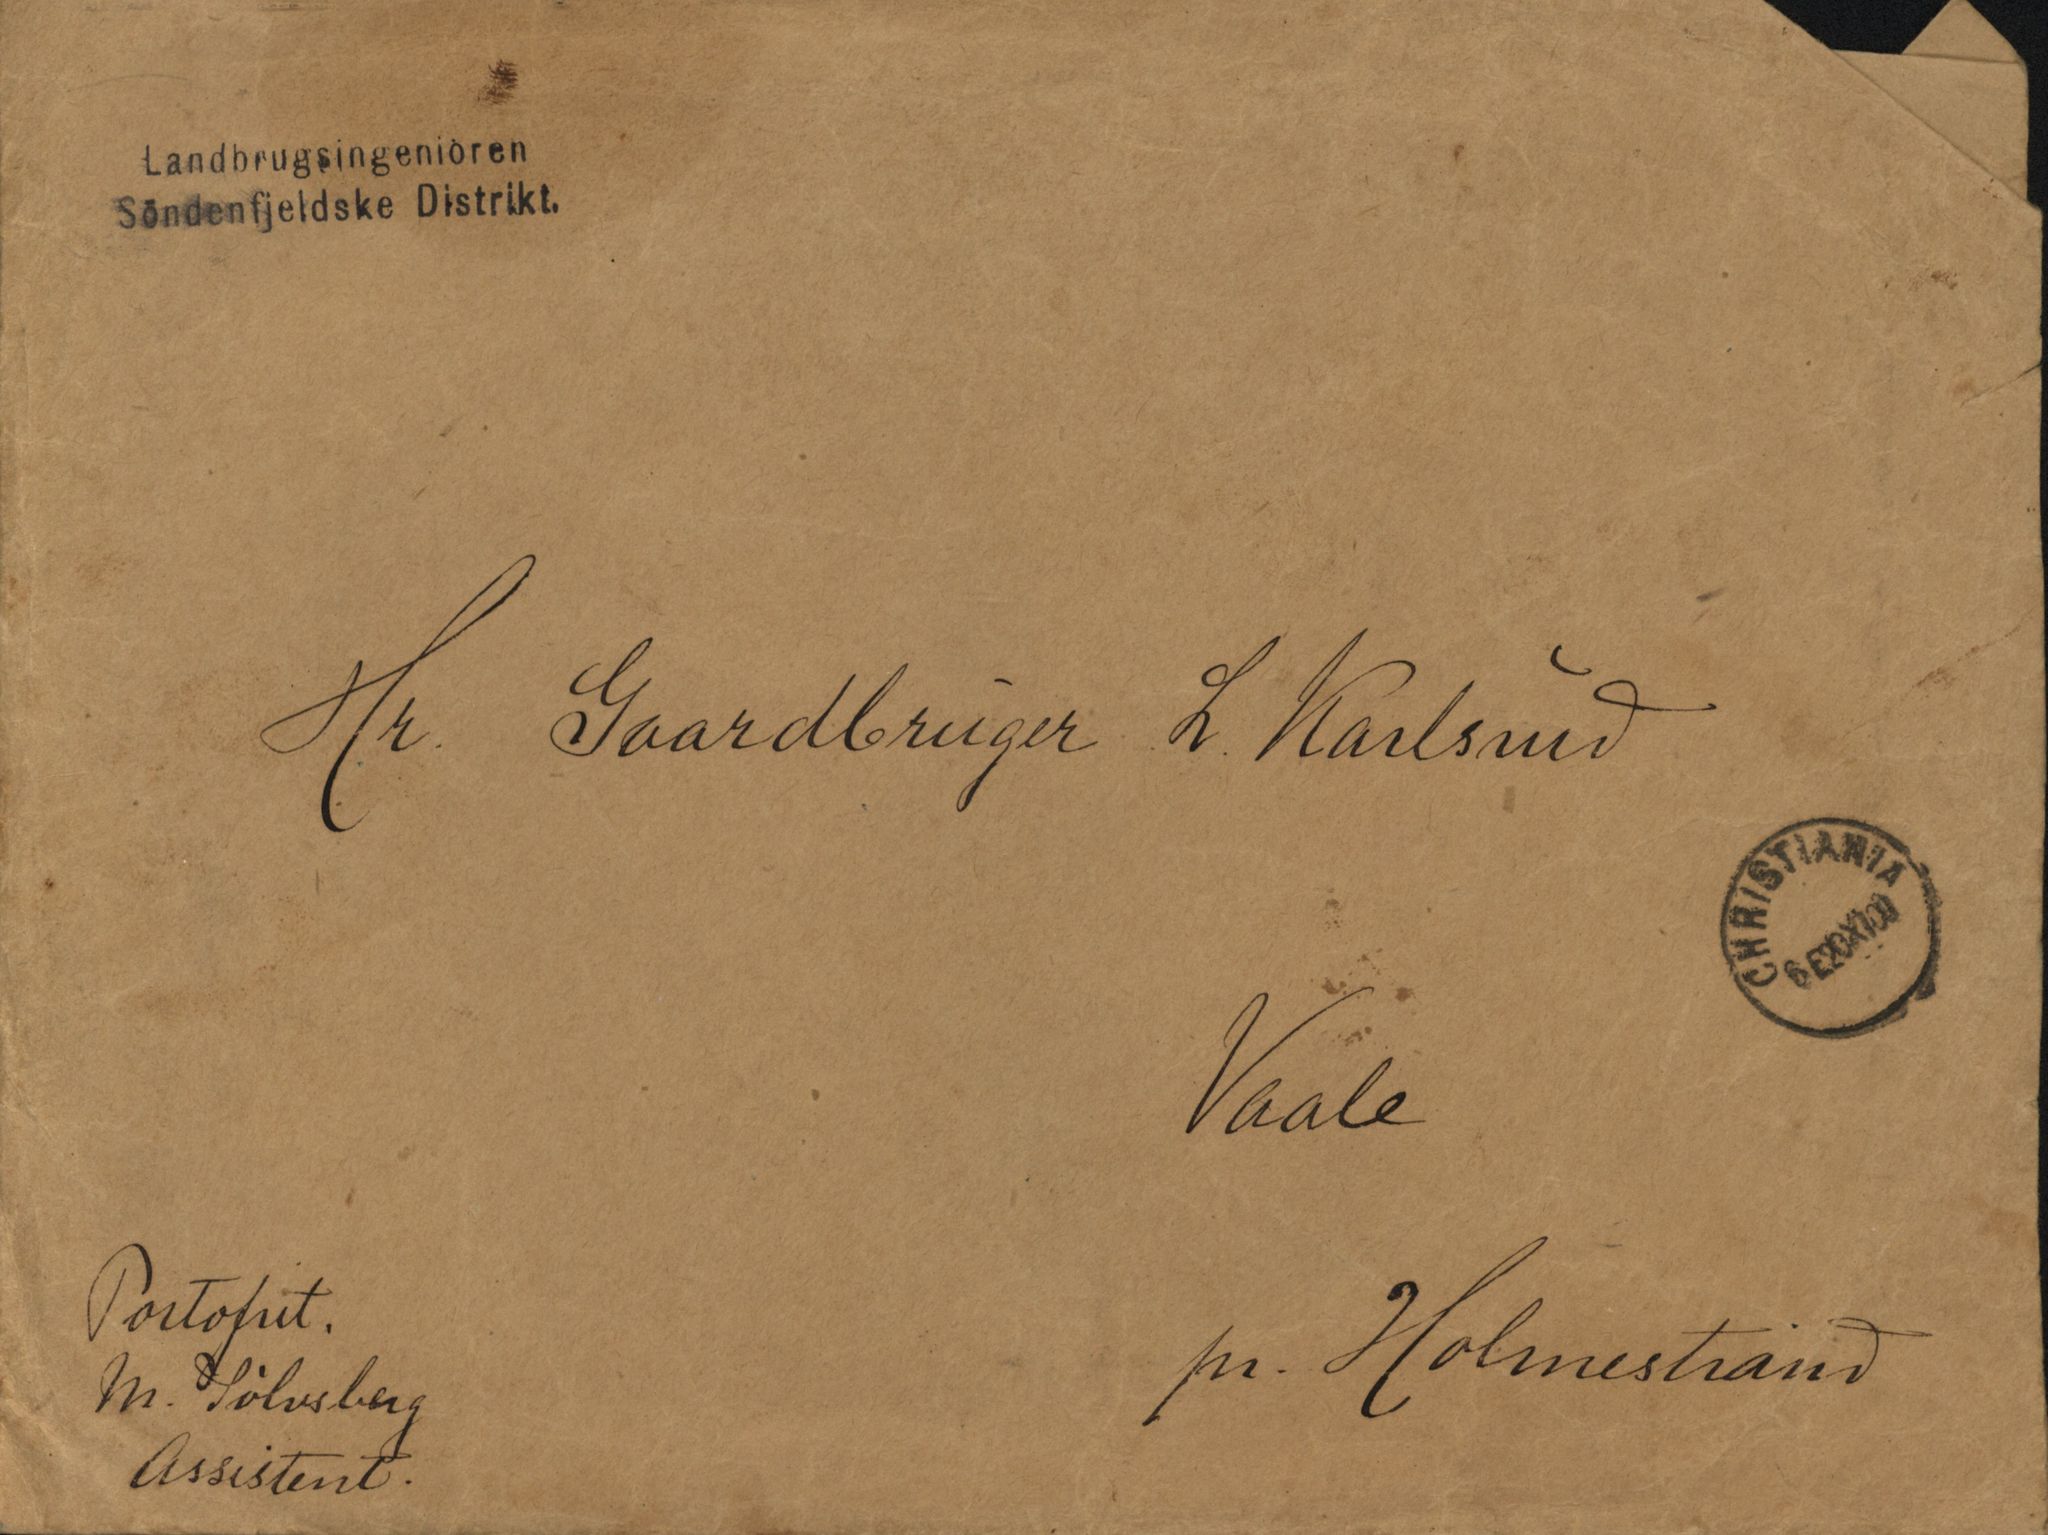 Landbrugsingeniören
Söndenfjeldske Distrikt.
Hr. Gaardbruger L. Karlsrud
CHRISTIANIA
Vaale
pr. Holmestrand
Portofrit.
M. Sölvsberg
Assistent.